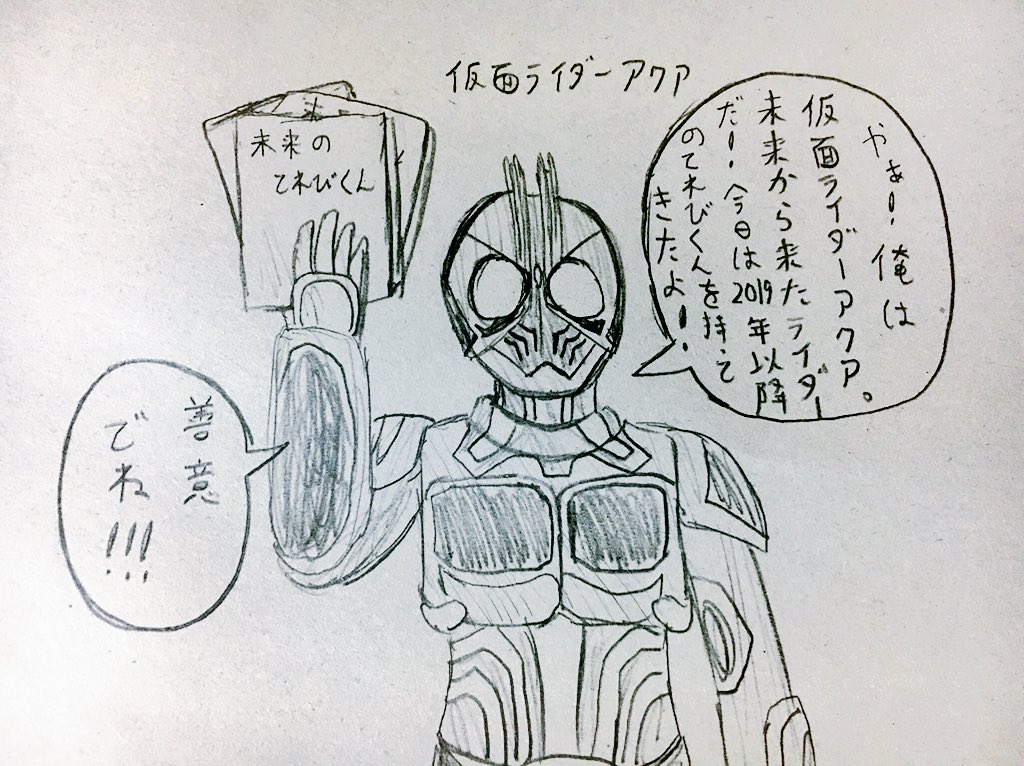 仮面ライダーアクア
やぁ!俺は
仮面ライダーアクア。
未来から来たライダー
だ!今日は2019年以降
のてれびくんを持って
きたよ!
未来の
てれびくん
善意
でね!!!